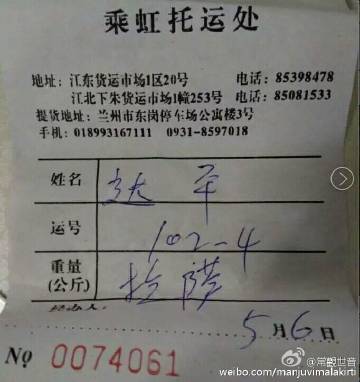 乘虹托运处
地址:江东货运市场1区20号 电话:85398478
江北下朱货运市场1幢253号 电话:85081533
提货地址:兰州市东岗停车场公寓楼3号
手机:018993167111 0931-8597018
姓名 达平
运号 102-4
重量
(公斤) 拉萨
经办人:
5月6日
№ 0074061
@常塑世音
weibo.com/marjuvimalakirti